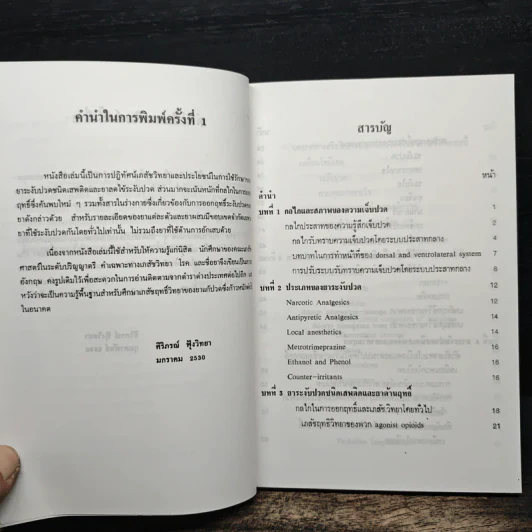 คำนำในการพิมพ์ครั้งที่ 1
หนังสือเล่มนี้เป็นการปฏิทัศน์เภสัชวิทยาและประโยชน์ในการใช้รักษา
ยาระงับปวดชนิดเสพติดและยาลดไข้ระงับปวด ส่วนมากจะเน้นหนักที่กลไกในการออก
ฤทธิ์ซึ่งค้นพบใหม่ ๆ รวมทั้งสารในร่างกายซึ่งเกี่ยวข้องกับการออกฤทธิ์ระงับปวด
ยาดังกล่าวด้วย สำหรับรายละเอียดของยาแต่ละตัวและยาผสมมีขอบเขตจำกัด
ยาที่ใช้ระงับปวดกันโดยทั่วไปเท่านั้น ไม่รวมถึงยาที่ใช้ด้านการอักเสบด้วย
เนื่องจากหนังสือเล่มนี้ใช้สำหรับให้ความรู้แก่นิสิต นักศึกษาของคณะ
ศาสตร์ในระดับปริญญาตรี คำเฉพาะทางเภสัชวิทยา โรค และชื่อยาจึงเขียนเป็น
อังกฤษ คงรูปเดิมไว้เพื่อสะดวกในการอ่านติดตามจากตำราต่างประเทศต่อไปอีก
หวังว่าจะเป็นความรู้พื้นฐานสำหรับศึกษาเภสัชฤทธิ์วิทยาของยาแก้ปวดซึ่งก้าวหน้า
ในอนาคต
ศิริภรณ์ ฟุ้งวิทยา
มกราคม 2530
สารบัญ
หน้า
คำนำ
บทที่ 1 กลไกและสภาพของความเจ็บปวด 1
กลไกประสาทของความรู้สึกเจ็บปวด 2
กลไกรับทราบความเจ็บปวดโดยระบบประสาทกลาง 4
บทบาทในการทำหน้าที่ของ dorsal and ventrolateral system 7
การปรับระบบรับทราบความเจ็บปวดโดยระบบประสาทกลาง 8
บทที่ 2 ประเภทของยาระงับปวด 12
Narcotic Analgesics 12
Antipyretic Analgesics 14
Local anesthetics 14
Metrotrimeprazine 16
Ethanol and Phenol 16
Counter-irritants 16
บทที่ 3 ยาระงับปวดชนิดเสพติดและยาต้านฤทธิ์
กลไกในการออกฤทธิ์และเภสัชวิทยาโดยทั่วไป 18
เภสัชฤทธิ์วิทยาของพวก agonist opioids 21